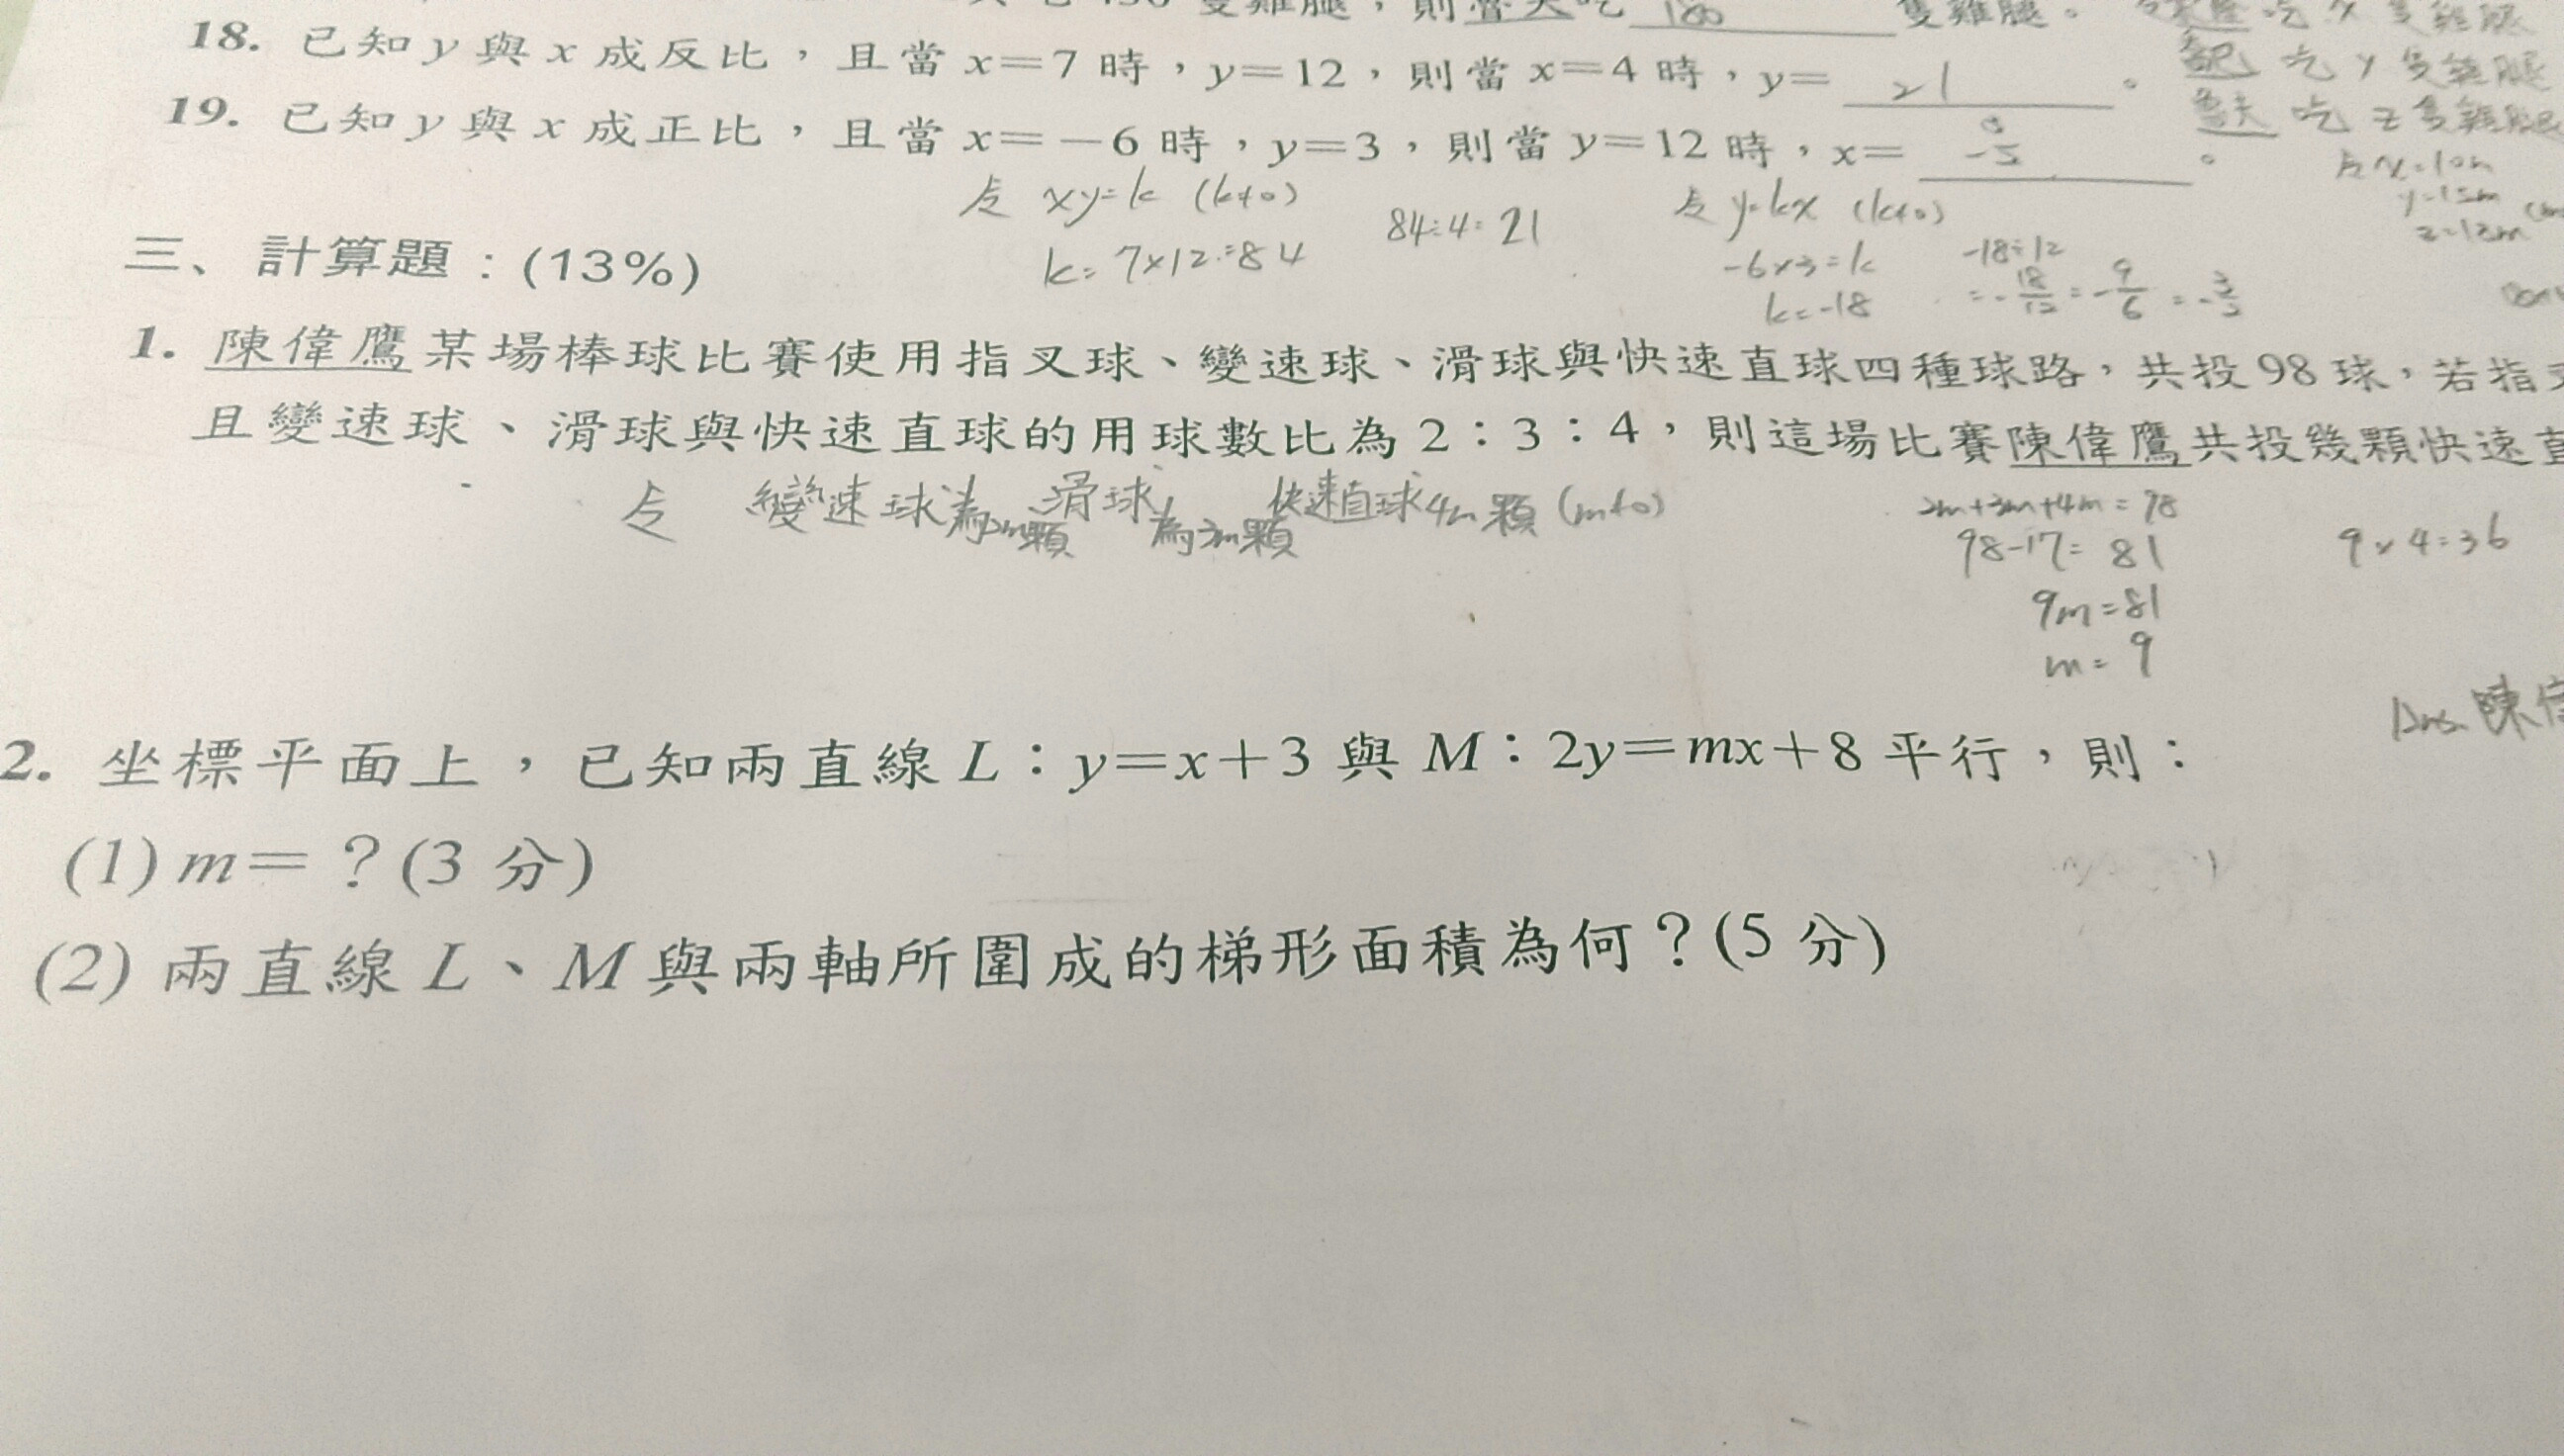 隻雞腿，則魯夫吃 180 隻雞腿。
吃 x 隻雞腿
18. 已知 y 與 x 成反比，且當 x＝7 時，y＝12，則當 x＝4 時，y＝ 21 。
吃 y 隻雞腿
19. 已知 y 與 x 成正比，且當 x＝－6 時，y＝3，則當 y＝12 時，x＝ 。
魯夫 吃 z 隻雞腿
令 xy=k (k≠0)
k= 7×12=84
84÷4=21
令 y=kx (k≠0)
-6×3=k
k=-18
-18÷12
=-18/12=-9/6=-3/2
令 x=10m
y=15m
z=12m
三、計算題：(13%)
1. 陳偉鷹某場棒球比賽使用指叉球、變速球、滑球與快速直球四種球路，共投 98 球，若指
且變速球、滑球與快速直球的用球數比為 2：3：4，則這場比賽陳偉鷹共投幾顆快速直
令 變速球為2m顆 滑球為3m顆 快速直球4m顆 (m≠0)
2m+3m+4m=98
98-17=81
9m=81
m=9
9×4=36
Ans. 陳偉
2. 坐標平面上，已知兩直線 L：y＝x＋3 與 M：2y＝mx＋8 平行，則：
(1) m＝？(3 分)
(2) 兩直線 L、M 與兩軸所圍成的梯形面積為何？(5 分)